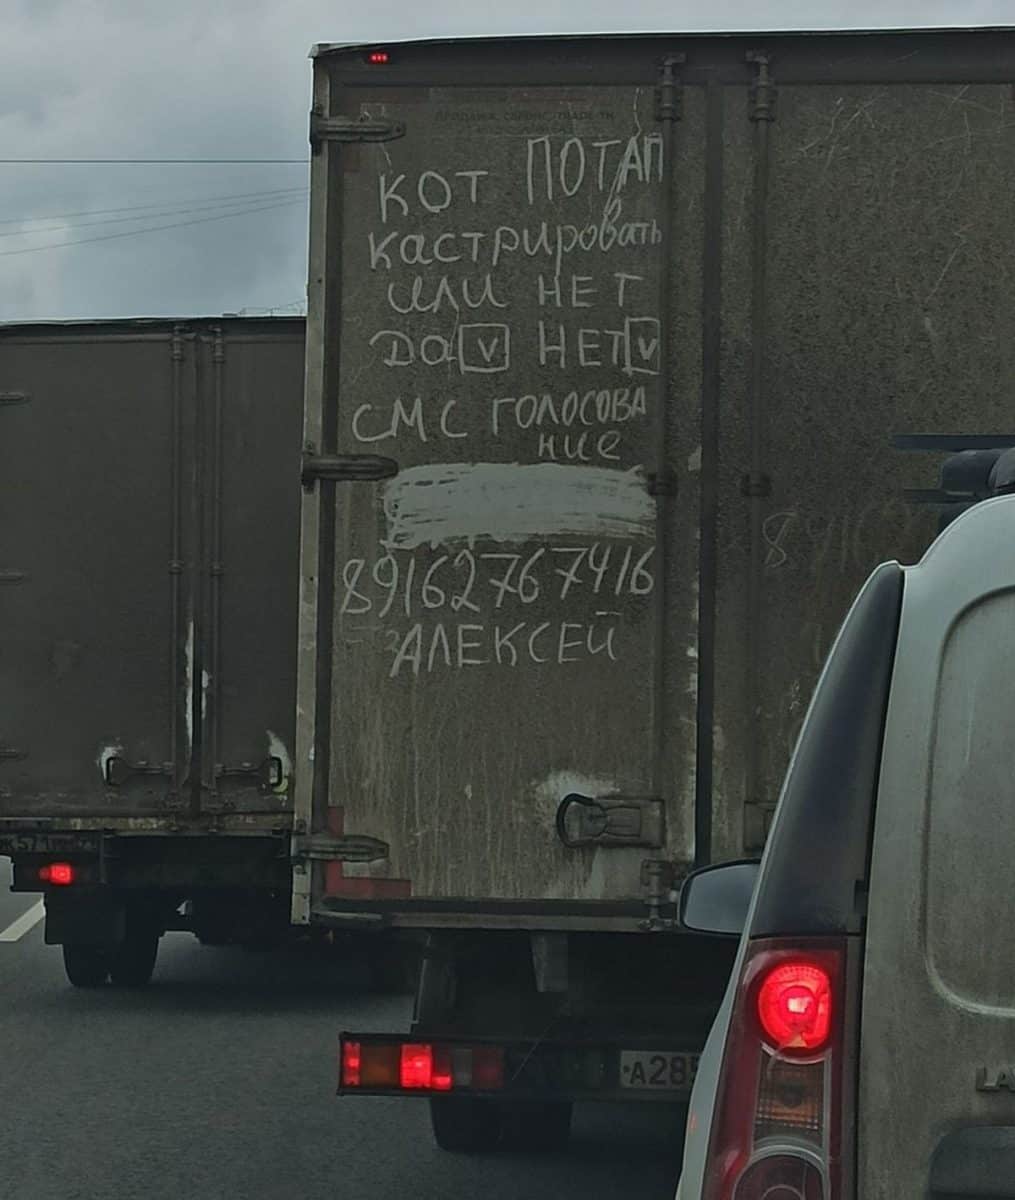 КОТ ПОТАП
кастрировать
или НЕТ
ДА V НЕТ V
СМС ГОЛОСОВА
ние
89162767416
АЛЕКСЕЙ
А285
LA